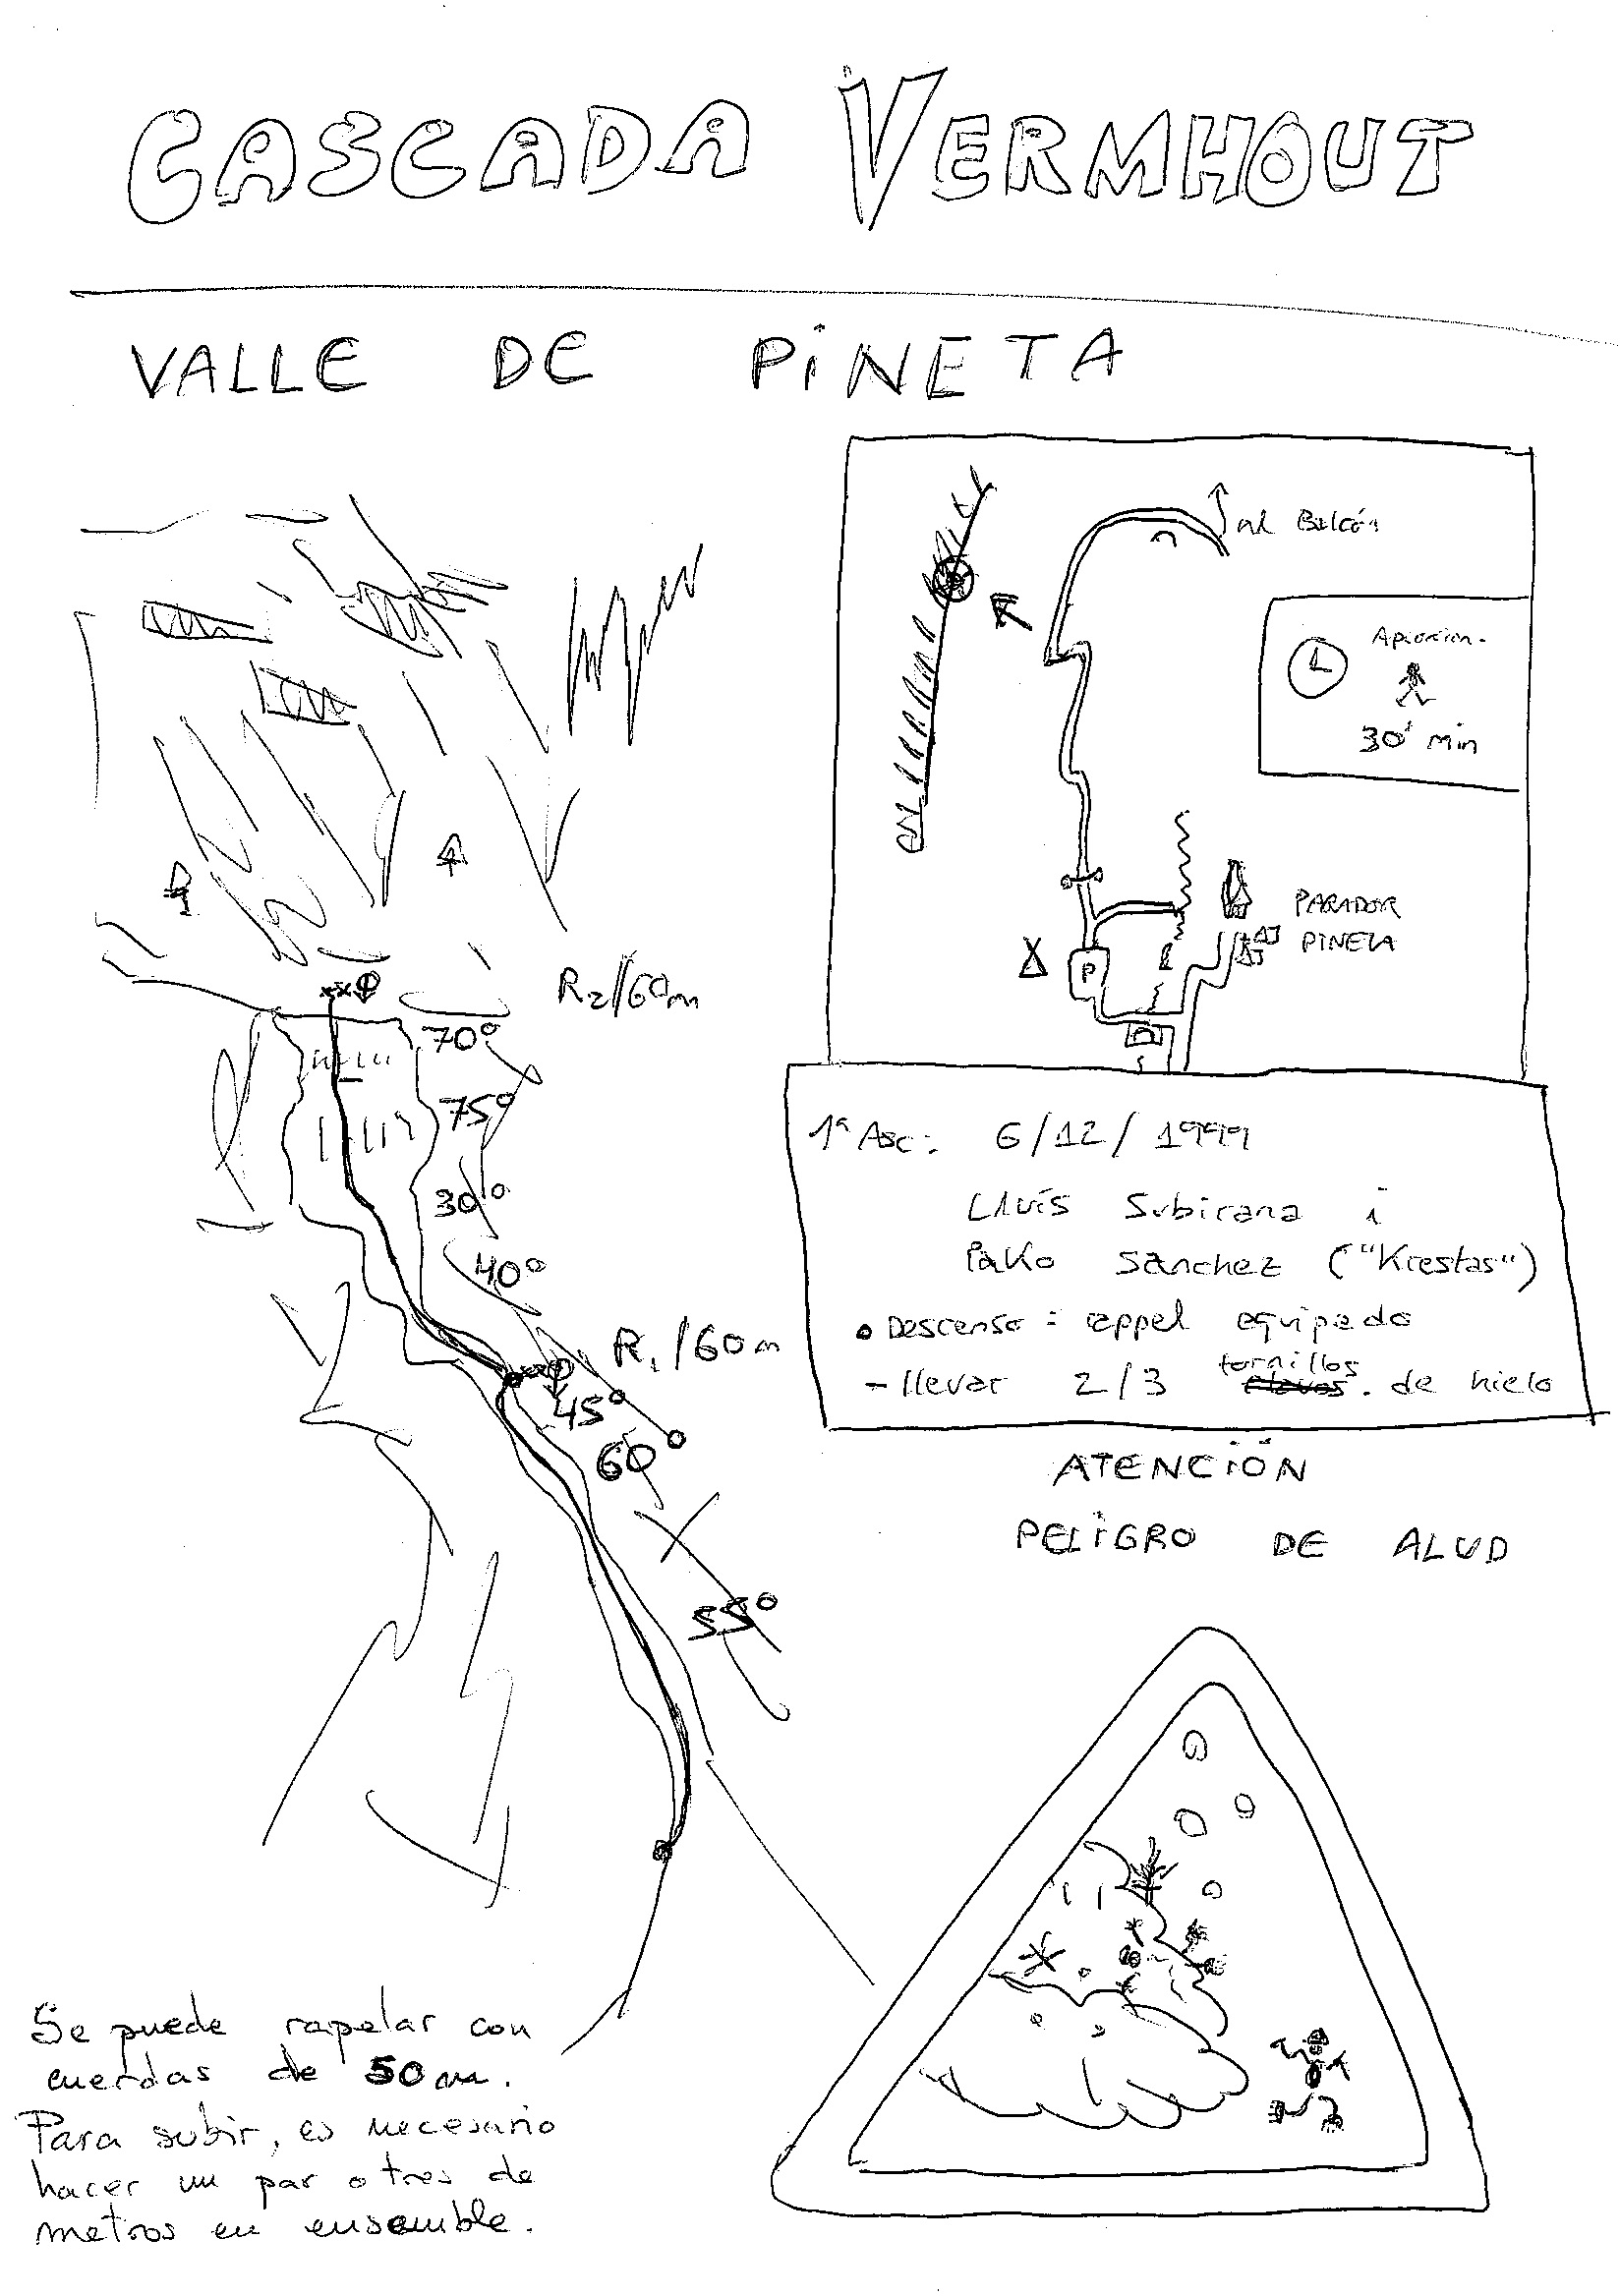 CASCADA VERMHOUT
VALLE DE PINETA
al Balcón
Aproxim.
30' min
PARADOR
PINETA
P
R2/60m
70°
75°
30°
40°
R1/60m
45°
60°
55°
1ª Asc: 6/12/1999
Lluís Subirana i
Pako Sánchez ("Krestas")
• Descenso: rappel equipado
- llevar 2/3 tornillos de hielo
ATENCIÓN
PELIGRO DE ALUD
Se puede rapelar con
cuerdas de 50 m.
Para subir, es necesario
hacer un par o tres de
metros en ensemble.